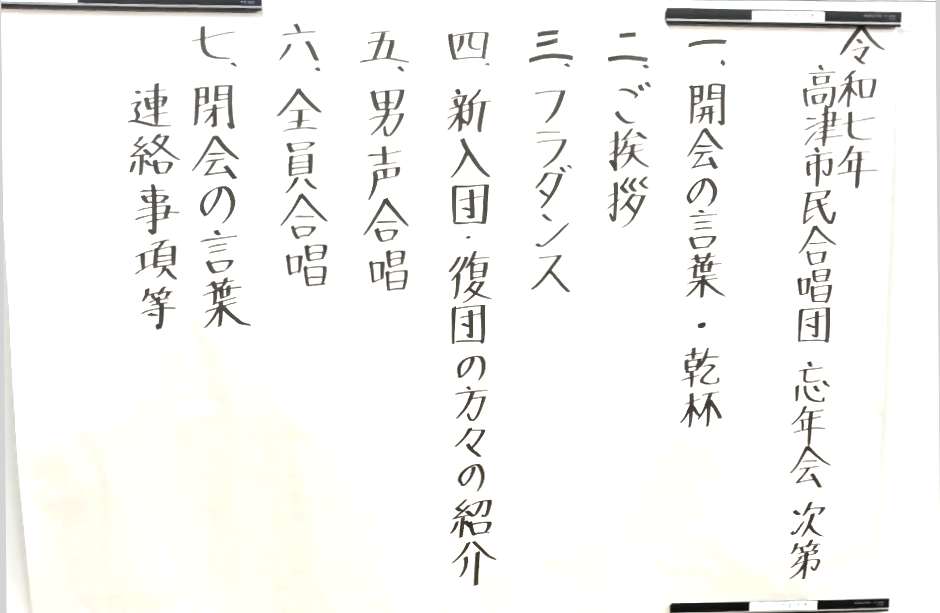 令和七年
高津市民合唱団 忘年会 次第
一、開会の言葉・乾杯
二、ご挨拶
三、フラダンス
四、新入団・復団の方々の紹介
五、男声合唱
六、全員合唱
七、閉会の言葉
連絡事項等